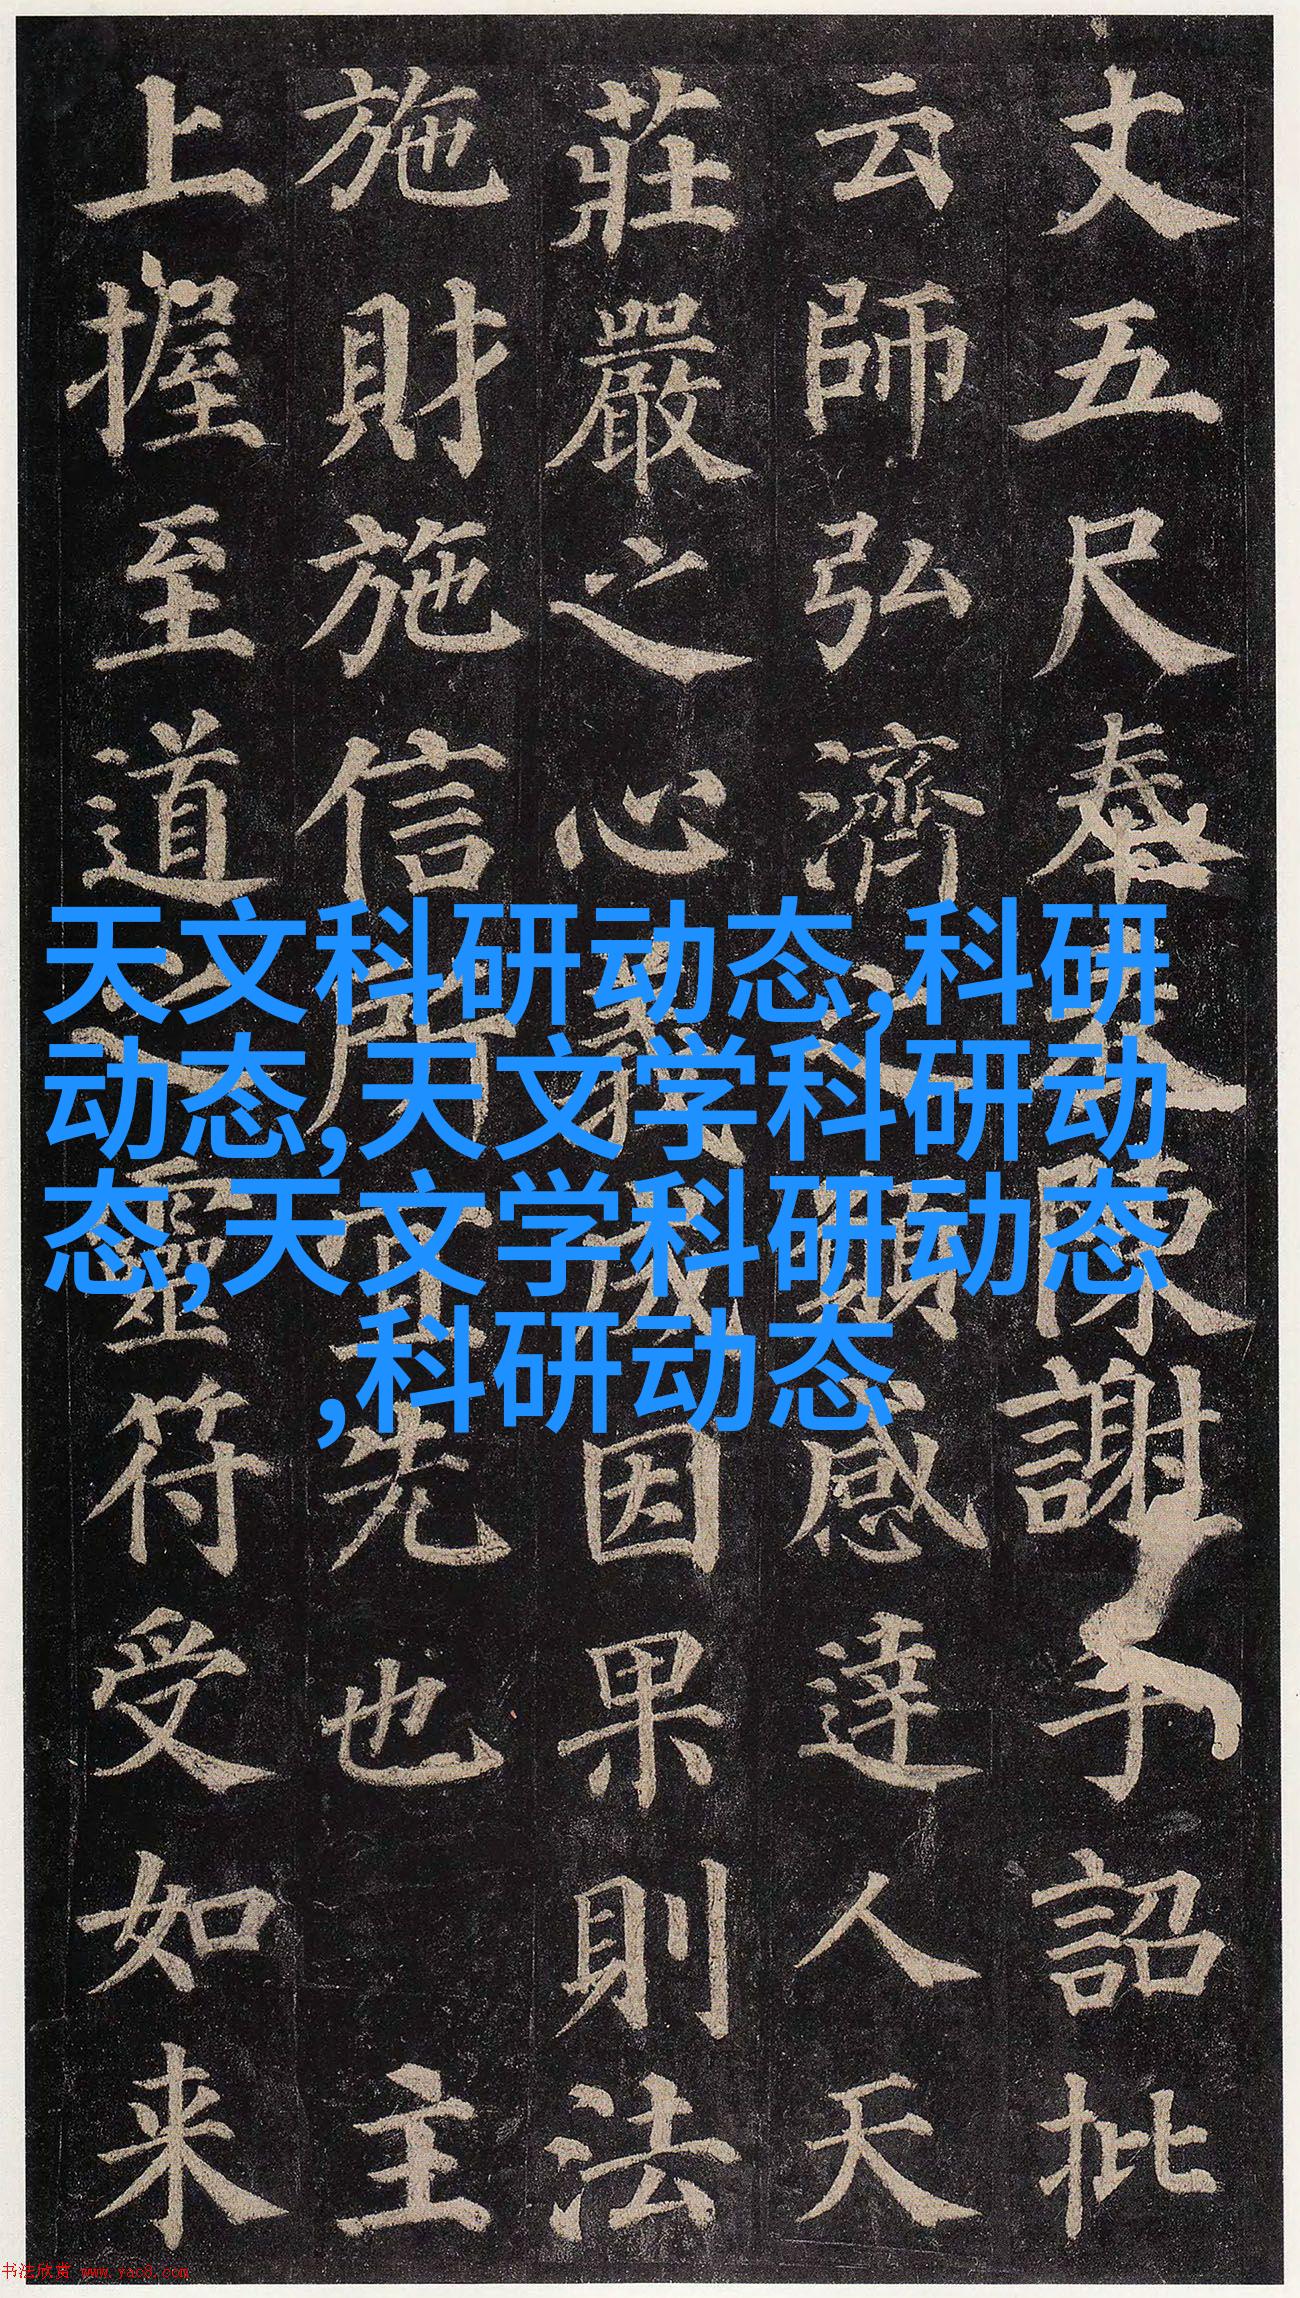 丈五尺奉表陳謝手詔批
云師弘濟之願感達人天
莊嚴之心義成因果則法
施財施信所宜先也主
上握至道之靈符受如来
天文科研动态,科研
动态,天文学科研动
态,天文学科研动态
,科研动态
书法欣赏 www.yac8.com